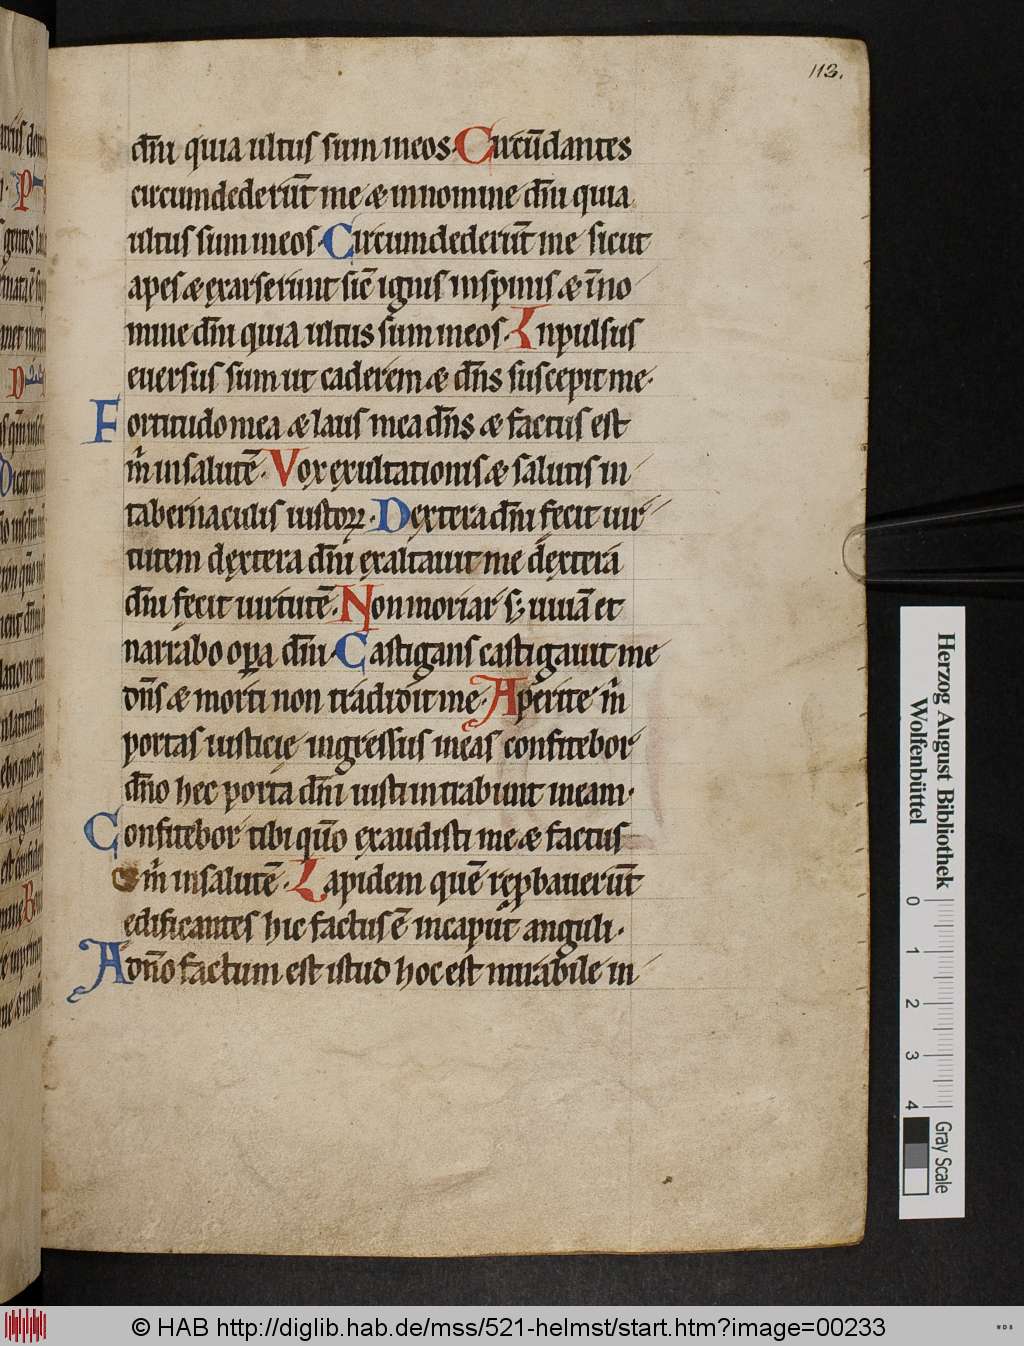 113.
dn̄i quia ultus sum in eos· Circūdantes
circumdederūt me & in nomine dn̄i quia
ultus sum in eos· Circumdederūt me sicut
apes & exarserunt sic̄ ignis in spinis & ī no
mine dn̄i quia ultus sum in eos· Inpulsus
euersus sum ut caderem & dn̄s suscepit me·
Fortitudo mea & laus mea dn̄s & factus est
m̄ in salutē· Vox exultationis & salutis in
tabernaculis iustoꝝ· Dextera dn̄i fecit uir
tutem dextera dn̄i exaltauit me dextera
dn̄i fecit uirtutē· Non moriar s; uiuā et
narrabo oꝑa dn̄i· Castigans castigauit me
dn̄s & morti non tradidit me· Aperite m̄
portas iusticię ingressus in eas confitebor
dn̄o hec porta dn̄i iusti intrabunt in eam·
Confitebor tibi qm̄o exaudisti me & factus
e m̄ in salutē· Lapidem quē reꝓbauerūt
edificantes hic factus ē in caput anguli·
A dn̄o factum est istud hoc est mirabile in
Herzog August Bibliothek
Wolfenbüttel
0 1 2 3 4
Gray Scale
© HAB http://diglib.hab.de/mss/521-helmst/start.htm?image=00233